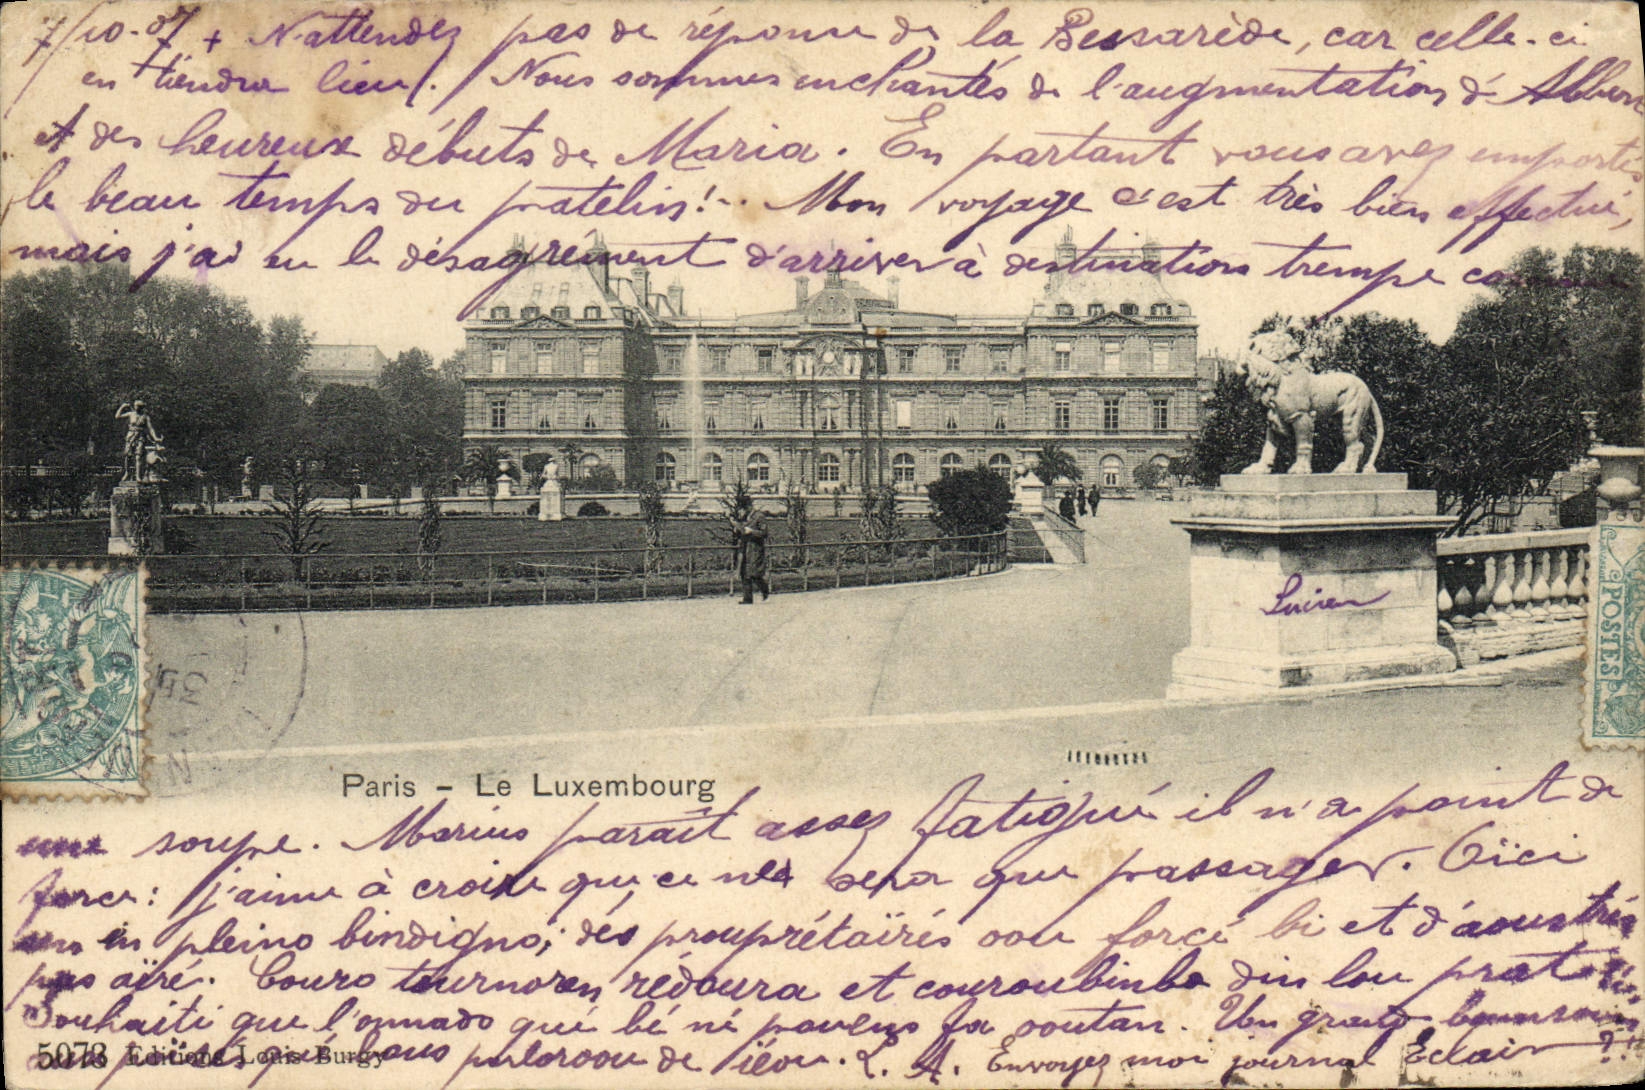 7/10-07 + N'attendez pas de réponse de la Bessarède, car celle-ci
en tiendra lieu. / Nous sommes enchantés de l'augmentation d'
et des heureux débuts de Maria. En partant vous avez emporté
le beau temps du pratelin! Mon voyage c'est très bien effectué,
mais j'ai eu le désagrément d'arriver à destination trempe comme
Lucien
POSTES
Paris - Le Luxembourg
une soupe. Marius paraît assez fatigué il n'a point de
force: j'aime à croire que ce ne sera que passager. Oïci
en pleino bindigno; dés prouprétaïrés oou forcé bi et d'aoustrés
pas aïré. Couro tournoren rédoura et couroubinba din lou prat
Souhaiti que l'onnado qué bé né pouens fa ooutan. Un grand
5073 Editions Louis Burgy
qué bous parloroou de ïéou. L. A. Envoyez moi journal Eclair ?